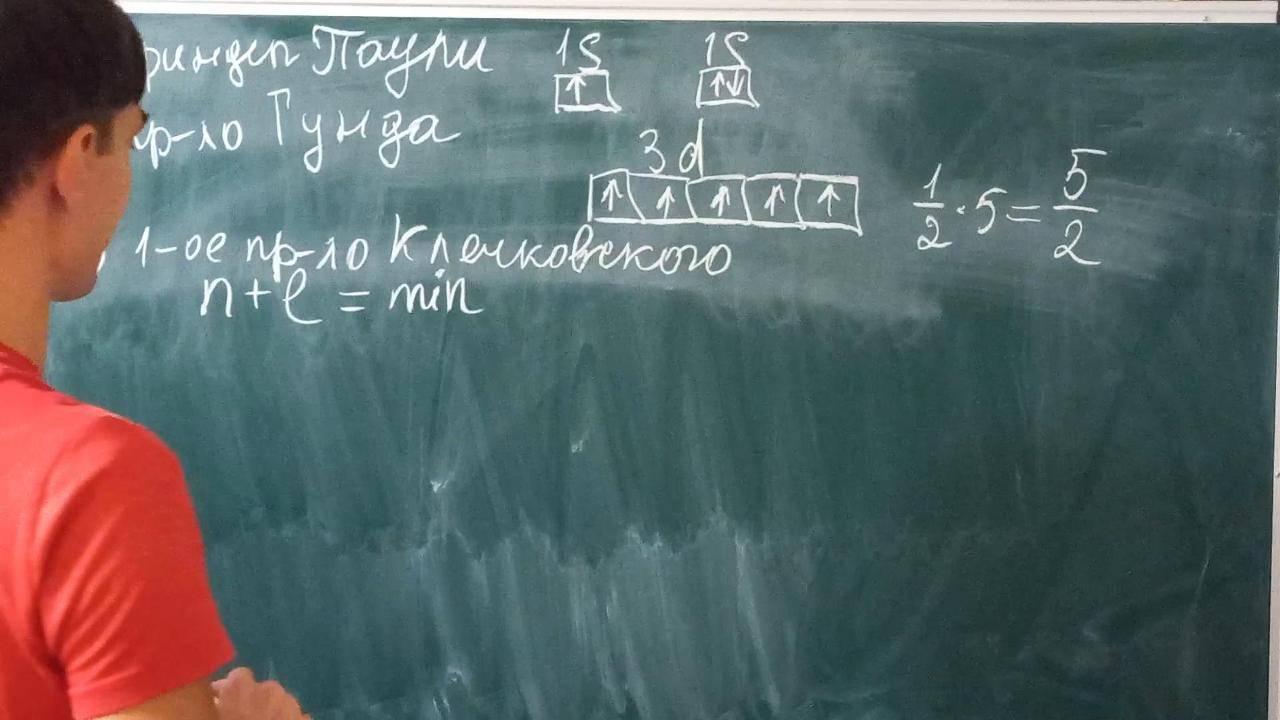 ринцип Паули 1S 1S
↑ ↑↓
пр-ло Гунда 3d
↑ ↑ ↑ ↑ ↑ 1/2 · 5 = 5/2
1-ое пр-ло Клечковского
n + l = min